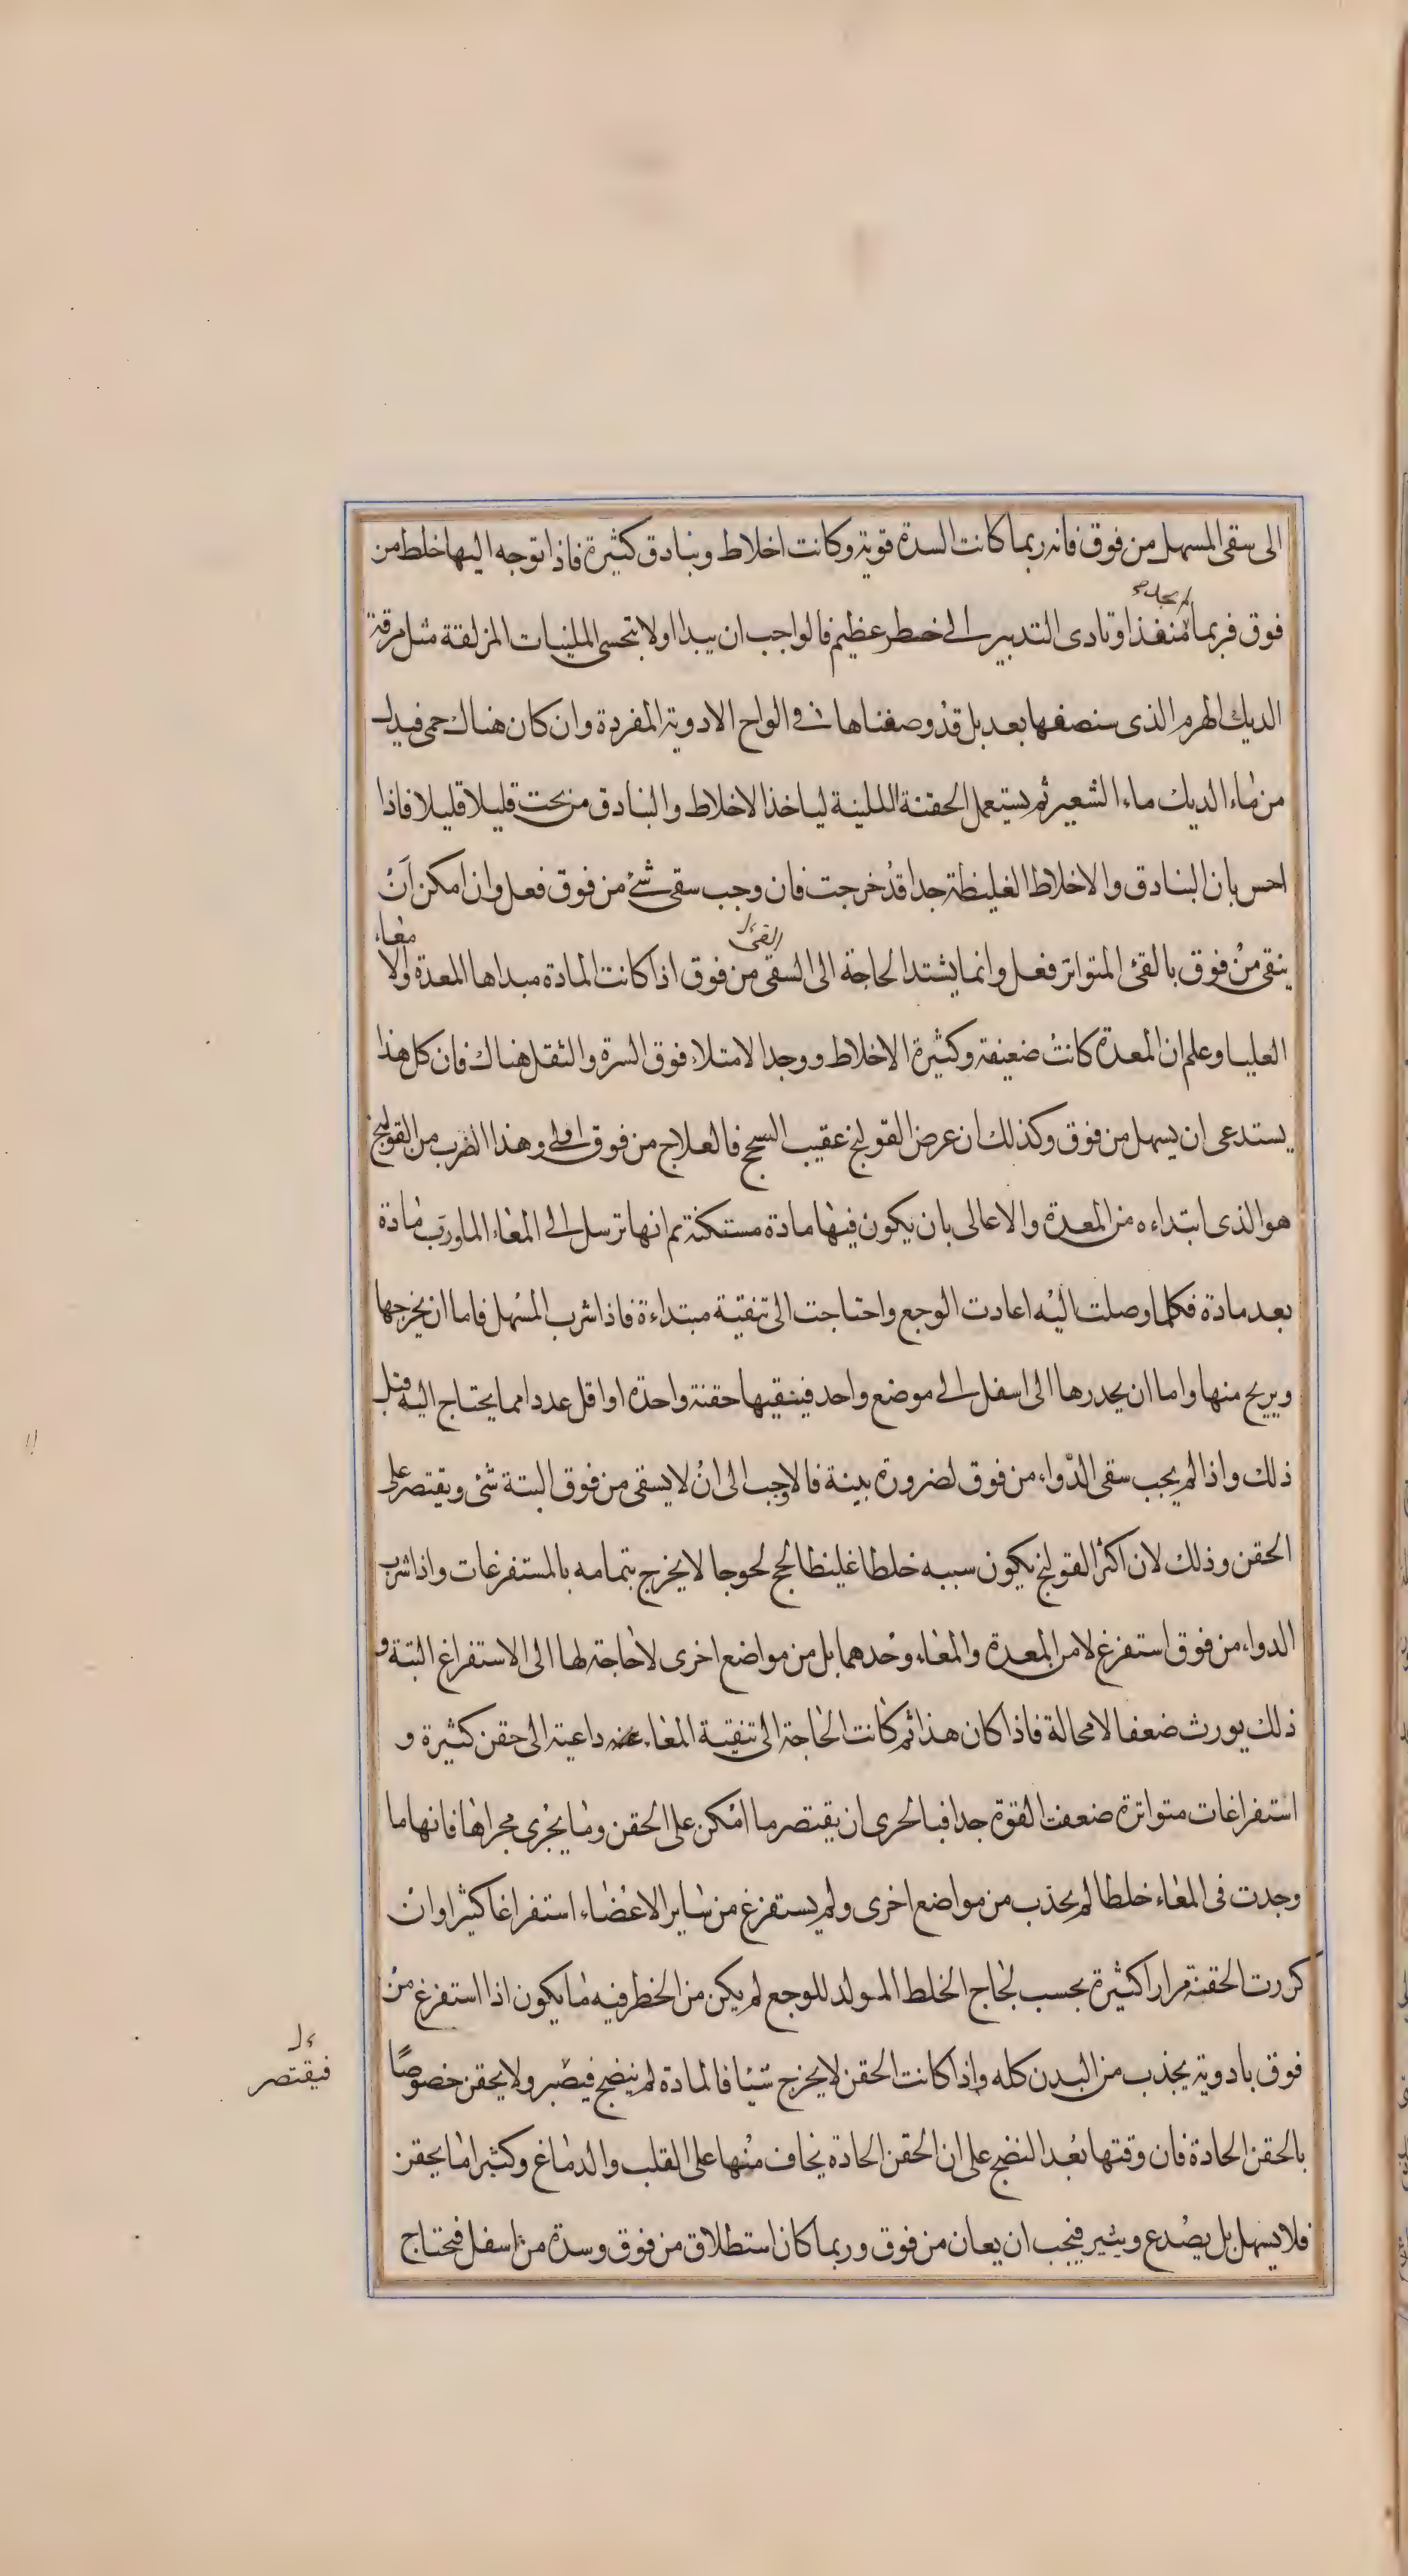 الى سقى المسهل من فوق فانه ربما كانت السدة قوية وكانت اخلاط وبنادق كثيرة فاذا توجه اليها خلط من
لم يجد
فوق فربما منفذا وتادى التدبير الى خطر عظيم فالواجب ان يبدا اولا بتحسى الملينات المزلقة مثل مرقة
الديك الهرم الذى سنصفها بعد بل قد وصفناها فى الواح الادوية المفردة وان كان هناك حمى فبدل
من ماء الديك ماء الشعير ثم يستعمل الحقنة اللينة لياخذ الاخلاط والبنادق من تحت قليلا قليلا فاذا
احس بان البنادق والاخلاط الغليظة جدا قد خرجت فان وجب سقى شئ من فوق فعل وان امكن ان
القئ
معاء
ينقى من فوق بالقئ المتواتر فعل وانما يشتد الحاجة الى السقى من فوق اذا كانت المادة مبداها المعدة والا
العليا وعلم ان المعدة كانت ضعيفة وكثيرة الاخلاط ووجد الامتلاء فوق السرة والثقل هناك فان كل هذا
يستدعى ان يسهل من فوق وكذلك ان عرض القولنج عقيب السحج فالعلاج من فوق اولى وهذا الضرب من القولنج
هو الذى ابتداءه من المعدة والاعالى بان يكون فيها مادة مستكنة ثم انها ترسل الى المعاء الماورب مادة
بعد مادة فكلما وصلت اليه اعادت الوجع واحتاجت الى تنقية مبتداءة فاذا شرب المسهل فاما ان يخرجها
ويريح منها واما ان يحدرها الى اسفل الى موضع واحد فينقيها حقنة واحدة او اقل عددا مما يحتاج اليه قبل
ذلك واذا لم يجب سقى الدواء من فوق لضرورة بينة فالاوجب الى ان لا يسقى من فوق البتة شى ويقتصر على
الحقن وذلك لان اكثر القولنج يكون سببه خلطا غليظا لحج لحوجا لا يخرج بتمامه بالمستفرغات واذا شرب
الدواء من فوق استفرغ لا من المعدة والمعاء وحدهما بل من مواضع اخرى لا حاجة لها الى الاستفراغ البتة و
ذلك يورث ضعفا لا محالة فاذا كان هذا ثم كانت الحاجة الى تنقية المعاء داعية الى حقن كثيرة و
استفراغات متواترة ضعفت القوة جدا فبالحرى ان يقتصر ما امكن على الحقن وما يجرى مجراها فانها ما
وجدت فى المعاء خلطا لم يجذب من مواضع اخرى ولم يستفرغ من ساير الاعضاء استفراغا كثيرا وان
كررت الحقنة مرارا كثيرة بحسب لجاج الخلط المولد للوجع لم يكن من الخطر فيه ما يكون اذا استفرغ من
فوق بادوية يجذب من البدن كله واذا كانت الحقن لا يخرج شيئا فالمادة لم ينضج فيصبر ولا يحقن خصوصا
فيقتصر
بالحقن الحادة فان وقتها بعد النضج على ان الحقن الحادة يخاف منها على القلب والدماغ وكثيرا ما يحقن
فلا يسهل بل يصدع ويثير فيجب ان يعان من فوق وربما كان استطلاق من فوق وسدة من اسفل فتحتاج